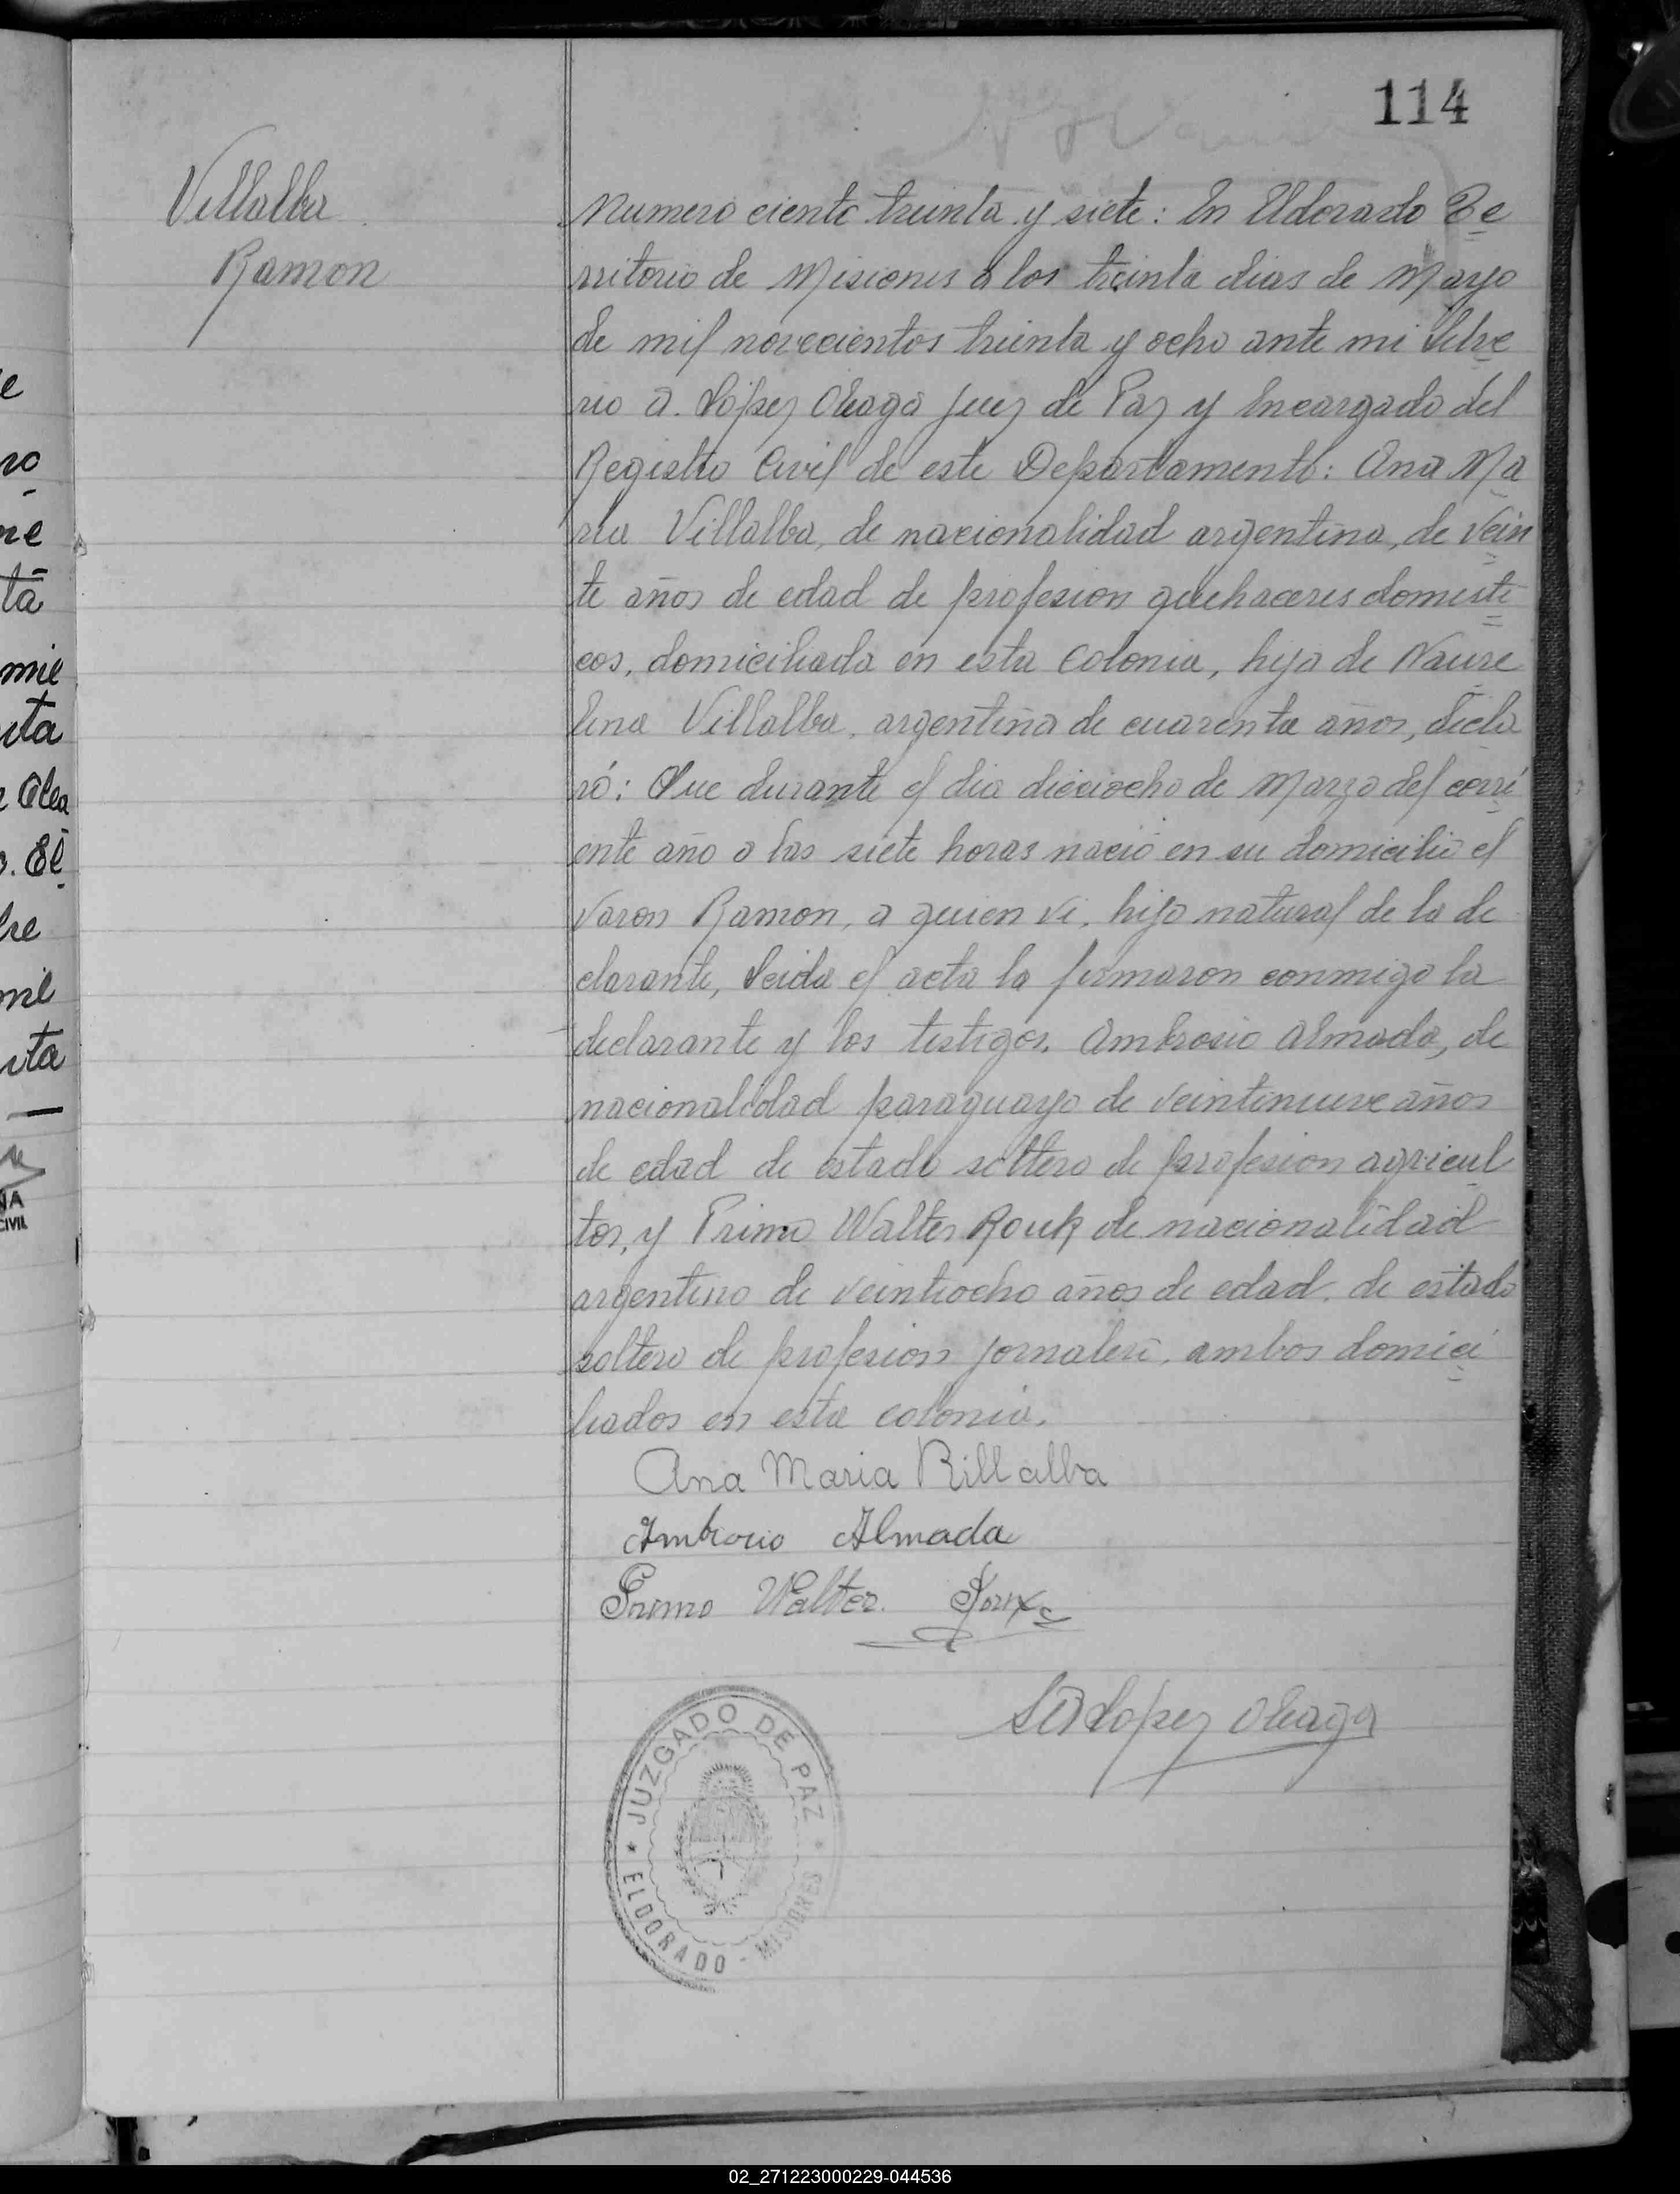 114
Villalba
Ramon
Numero ciento treinta y siete: En Eldorado Te
rritorio de Misiones a los treinta dias de Mayo
de mil novecientos treinta y ocho ante mi Silve
rio A. López Oleaga Juez de Paz y Encargado del
Registro Civil de este Departamento: Ana Ma
ria Villalba, de nacionalidad argentina, de vein
te años de edad de profesion quehaceres domesti
cos, domiciliada en esta Colonia, hija de Naure
lina Villalba, argentina de cuarenta años, decla
ró: Que durante el dia dieciocho de Marzo del corri
ente año a las siete horas nació en su domicilio el
varon Ramon, a quien vi, hijo natural de la de
clarante, Leida el acta la firmaron conmigo la
declarante y los testigos, Ambrosio Almada, de
nacionalidad paraguayo de veintinueve años
de edad de estado soltero de profesion agricul
tor, y Primo Walter de nacionalidad
argentino de veintiocho años de edad, de estado
soltero de profesion jornalero, ambos domici
liados en esta colonia.
Ana Maria Rillalba
Ambrosio Almada
Primo Walter
S A López Oleaga
JUZGADO DE PAZ
* ELDORADO - MISIONES *
e
ro
ne
ta
mil
nta
Olea
. El
re
mil
nta
NA
CIVIL
02_271223000229-044536